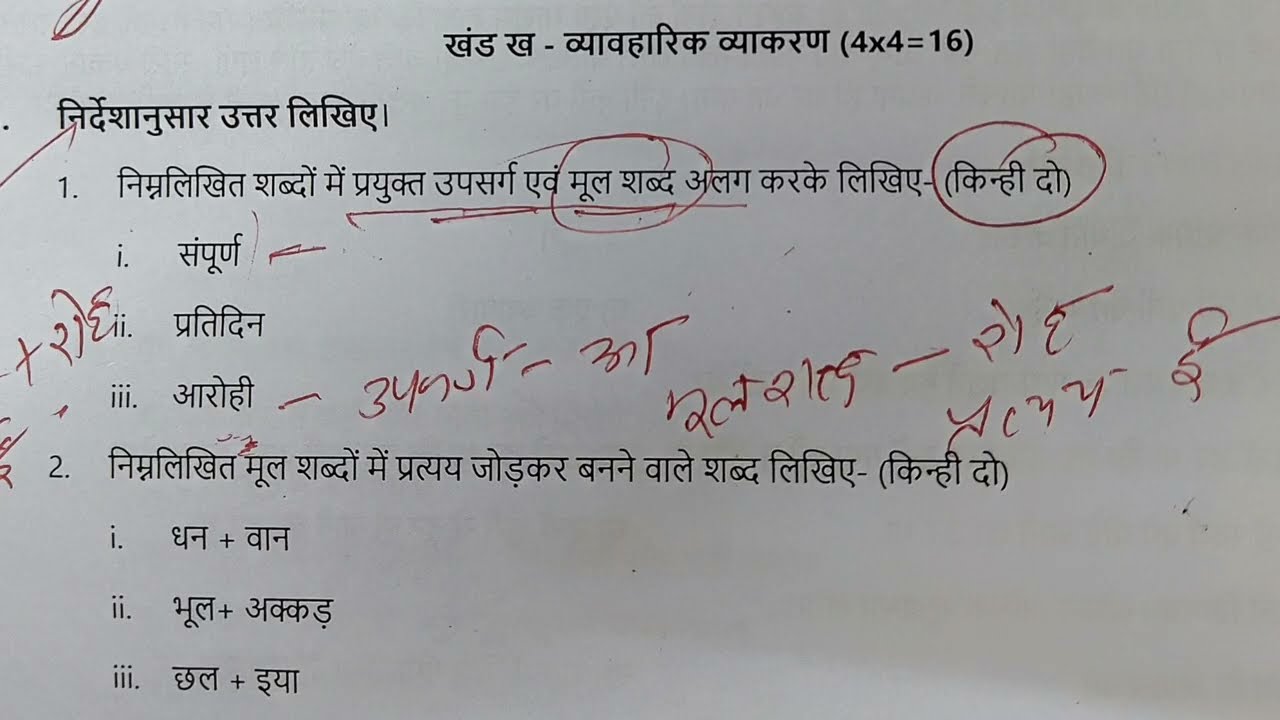 खंड ख - व्यावहारिक व्याकरण (4x4=16)
निर्देशानुसार उत्तर लिखिए।
1. निम्नलिखित शब्दों में प्रयुक्त उपसर्ग एवं मूल शब्द अलग करके लिखिए- (किन्ही दो)
i. संपूर्ण
+ रोह ii. प्रतिदिन
iii. आरोही - उपसर्ग - आ मूल शब्द - रोह
प्रत्यय - ई
2. निम्नलिखित मूल शब्दों में प्रत्यय जोड़कर बनने वाले शब्द लिखिए- (किन्ही दो)
i. धन + वान
ii. भूल+ अक्कड़
iii. छल + इया